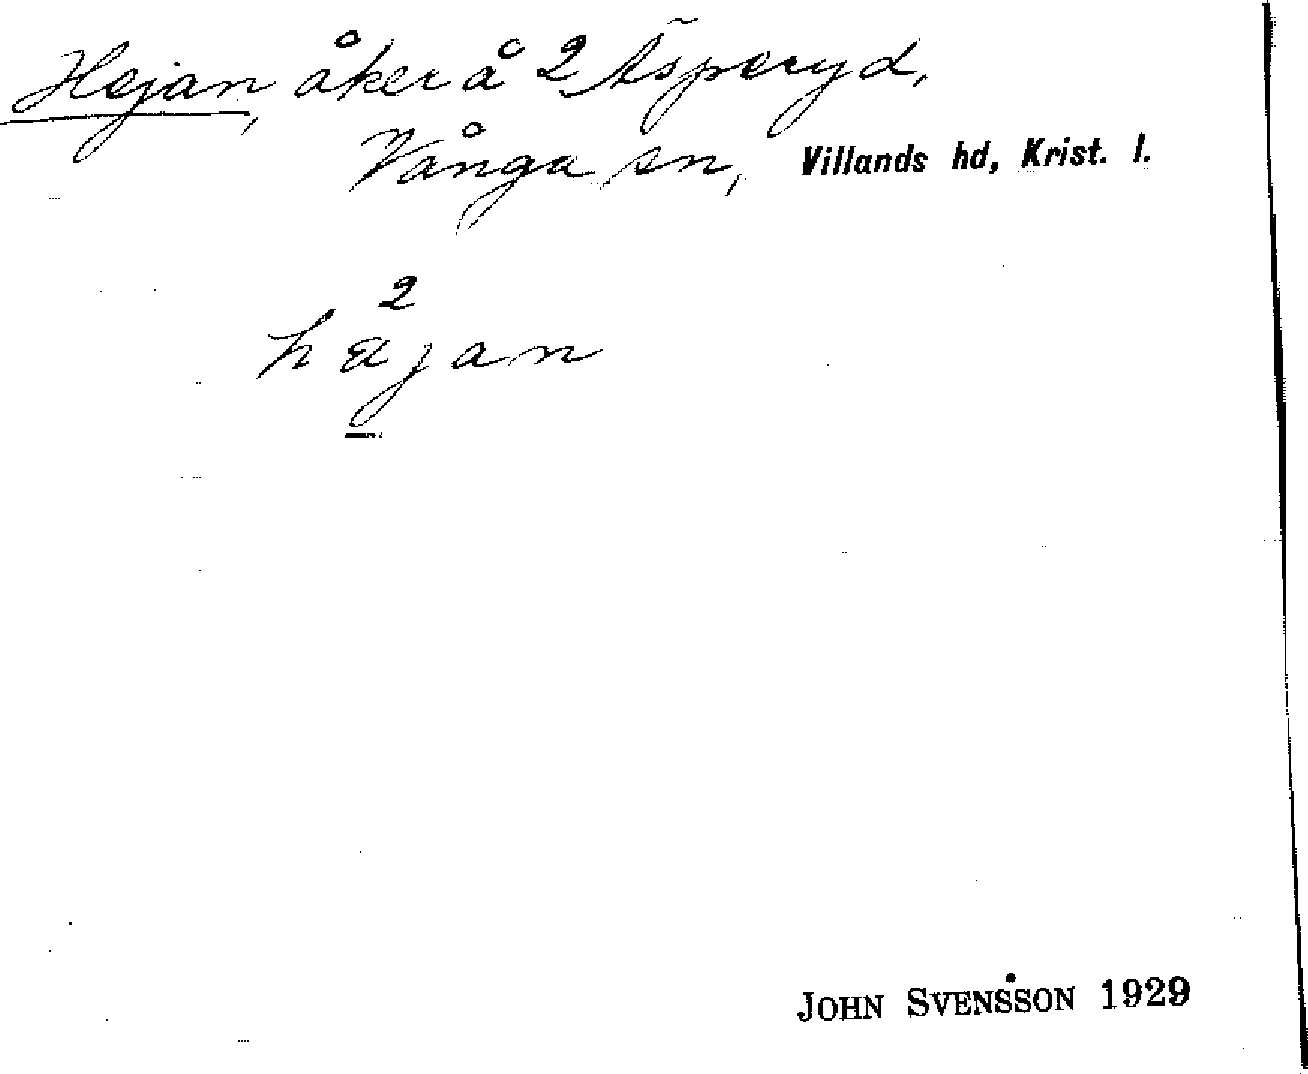 Hejan, åker å 2 Äsperyd,
Vånga sn, Villands hd, Krist. l.
2
håjan
JOHN SVENSSON 1929